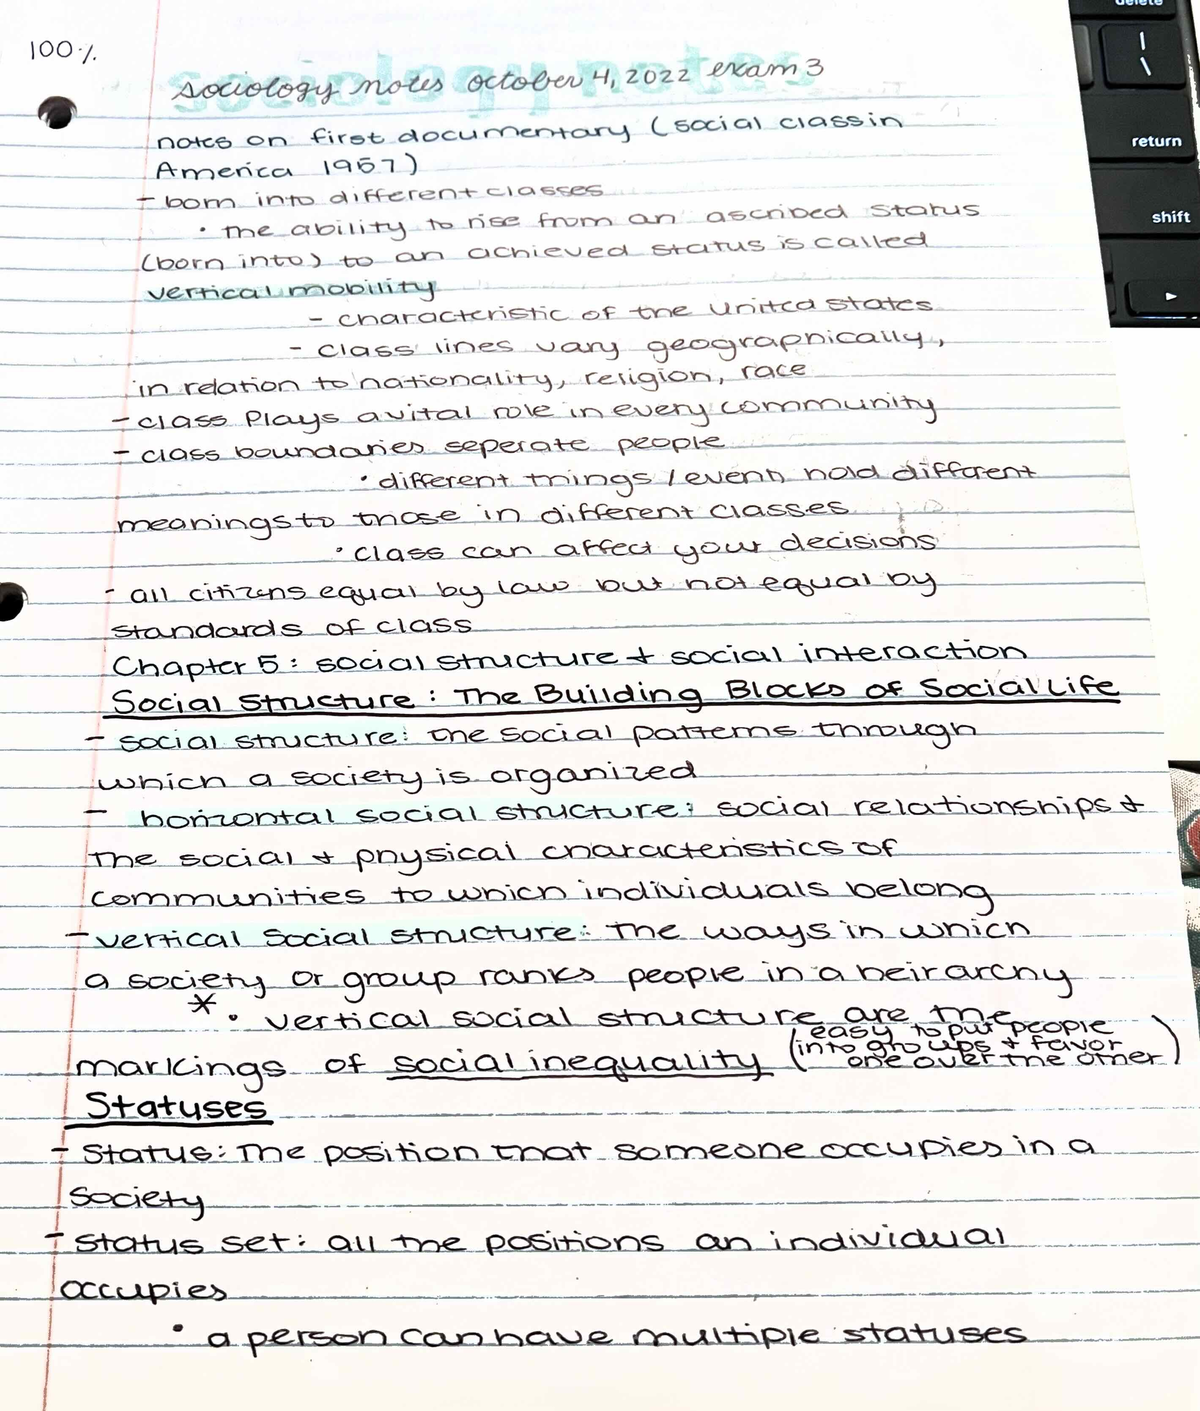 100%
sociology notes
sociology notes october 4, 2022 exam 3
notes on first documentary (social class in
America 1957)
- born into different classes
• the ability to rise from an ascribed status
(born into) to an achieved status is called
vertical mobility
- characteristic of the united states
- class lines vary geographically,
in relation to nationality, religion, race
- class plays a vital role in every community
- class boundaries seperate people
• different things / events hold different
meanings to those in different classes
• class can affect your decisions
- all citizens equal by law but not equal by
standards of class
Chapter 5: social structure + social interaction
Social Structure: The Building Blocks of Social Life
- social structure: the social patterns through
which a society is organized
- horizontal social structure: social relationships +
the social + physical characteristics of
communities to which individuals belong
- vertical social structure: the ways in which
a society or group ranks people in a heirarchy
* • vertical social structure are the
markings of social inequality (easy to put people
into groups + favor
one over the other)
Statuses
- Status: The position that someone occupies in a
society
- status set: all the positions an individual
occupies
• a person can have multiple statuses
delete
|
\
return
shift